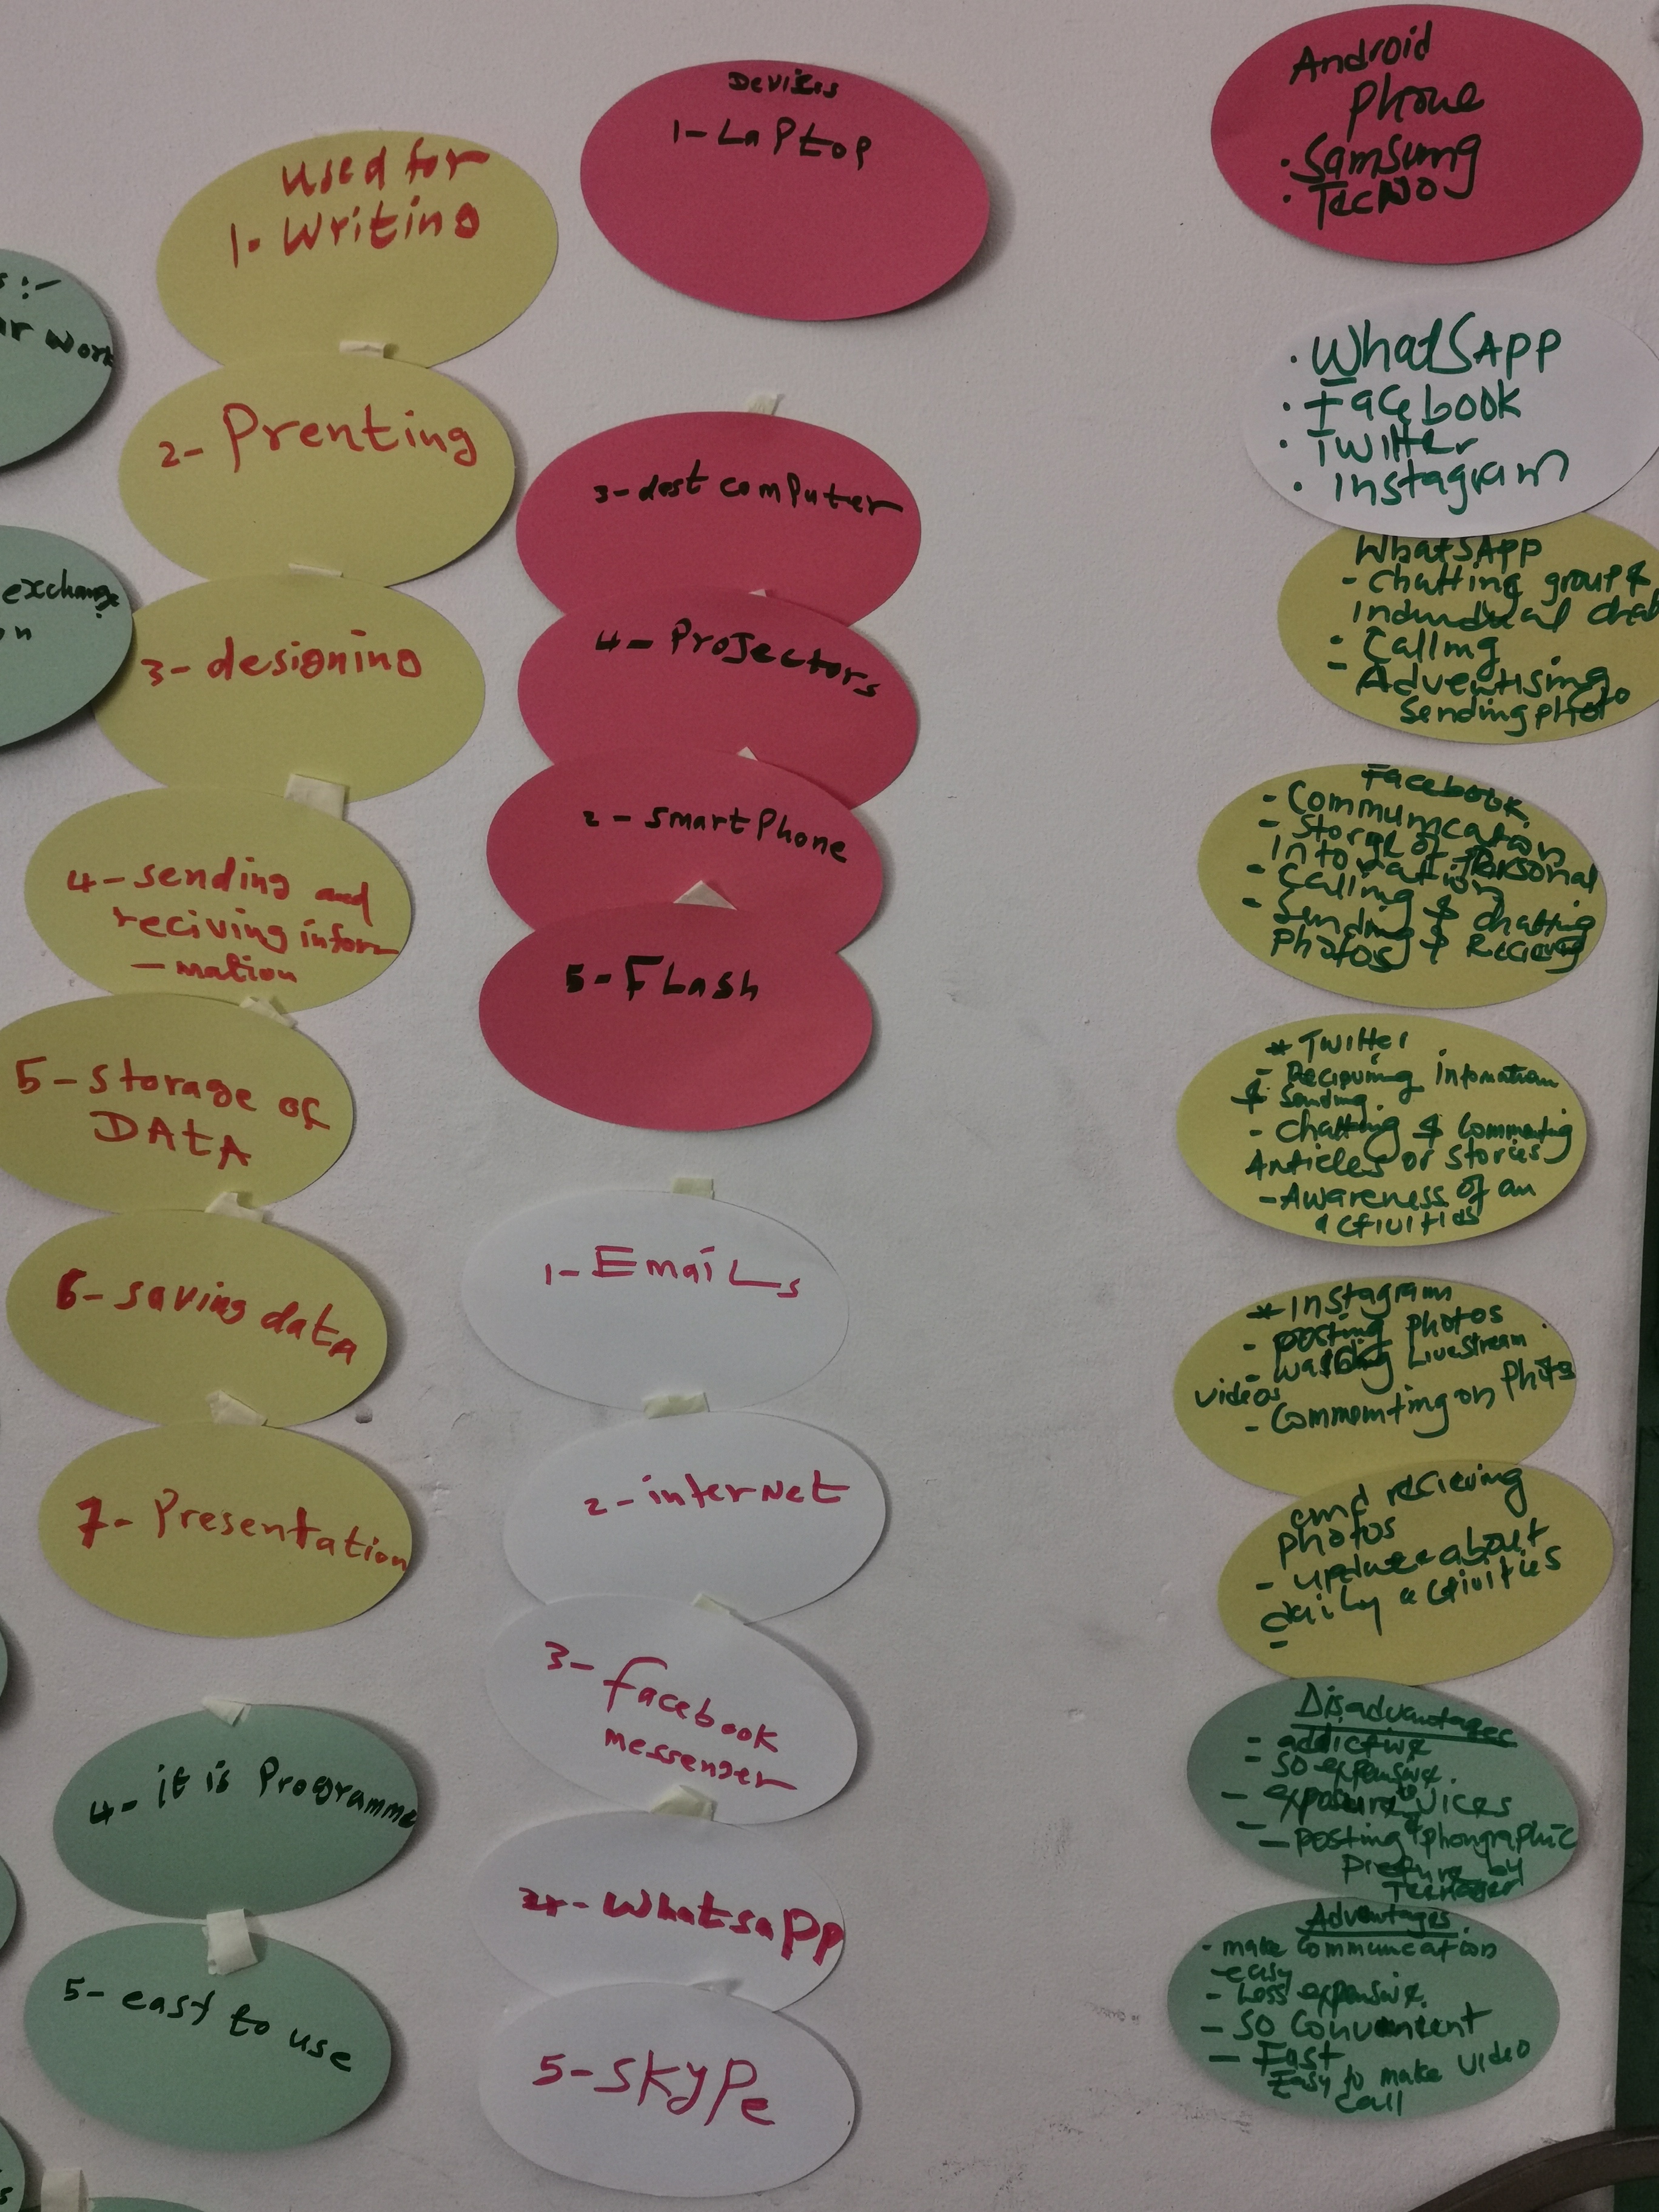 s :-
ar work
exchange
on
used for
1. Writing
2- Prenting
3- designing
4- sending and
reciving infor-
-mation
5- storage of
DAtA
6- saving data
7- Presentation
4- it is Programme
5- easy to use
Devices
1- LaPtop
3- dest comPuter
4- Projectors
2- smartPhone
5- FLash
1- EmaiLs
2- interNet
3- facebook
messenger
4- Whatsapp
5- SkyPe
Android
phone
• Samsung
• TecNO
• WhatSApp
• Facebook
• Twitter
• instagram
WhatSApp
- Chatting group &
Individual chat
- Calling
- Advertising
Sending photo
Facebook
- Communication
- Storge of Personal
Information
- Calling & chatting
- Sending & Recieving
Photos
* Twitter
- Recieving Information
& Sending.
- Chatting & Commenting
Articles or Stories
- Awareness of an
activities
* Instagram
- posting photos
- Livestream
videos
- Commenting on Photos
and recieving
photos
- update about
daily activities
-
Disadvantages
- addictive
- so expensive.
- exposure to vices
- posting of phongraphic
by
Teenager
Advantages
- make Communication
easy
- Less expensive.
- so Convenient
- Fast
Easy to make video
call